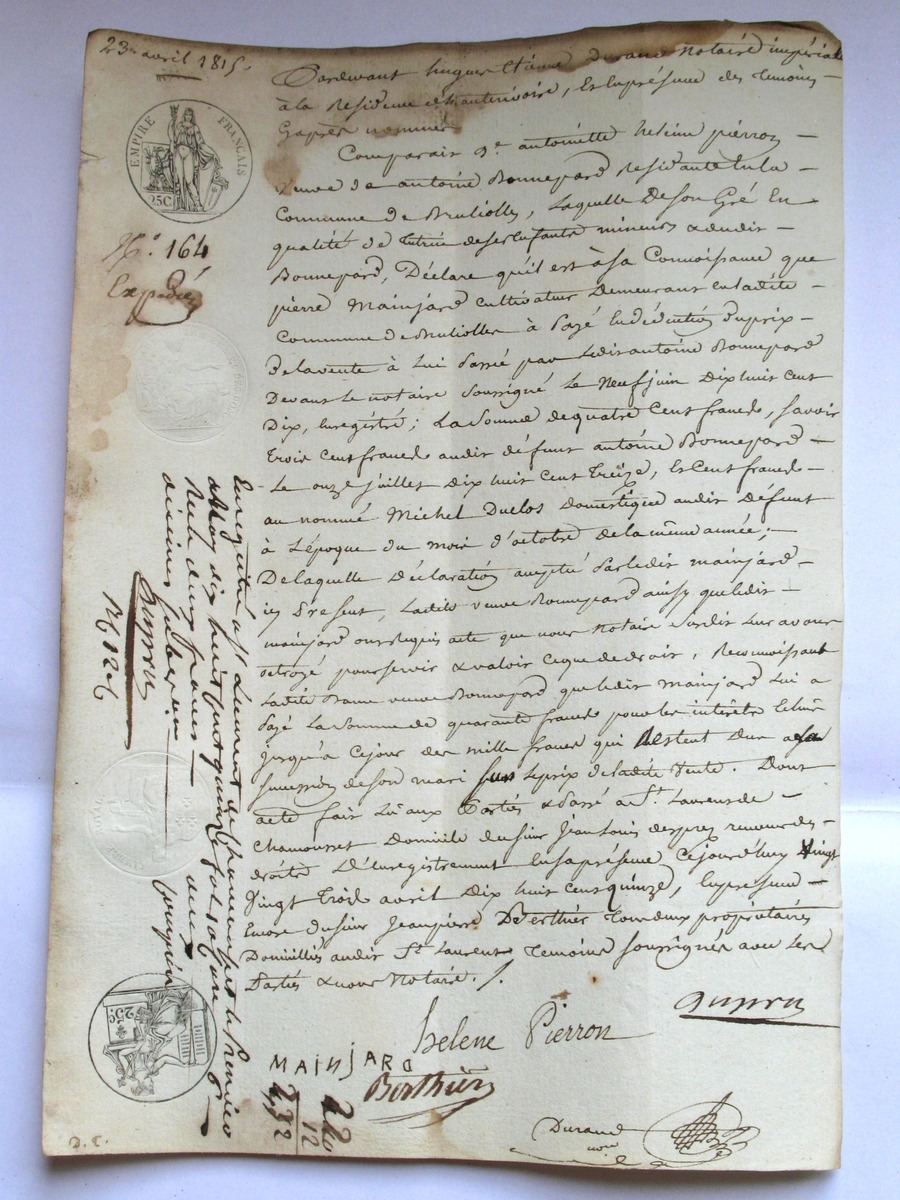 23 avril 1815.
Pardevant hugues Etiene Durand Notaire impérial
à la Residence, Et en présence des témoins
Cyaprès nommés
Comparait De. antoinette helene pierron
veuve de antoine Bonnepard Residante en la
Commune de Brulliolles, Laquelle De son Gré En
qualité de tutrice de ses Enfants mineurs & dudit
Bonnepard, Déclare qu'il est à sa Connoissance que
pierre Mainjard Cultivateur Demeurant en ladite
Commune de Brulliolles à Payé En déduction Du prix
De la vente à Lui Passée par Ledit antoine Bonnepard
Devant le notaire Soussigné Le Neuf juin Dix huit cent
Dix, Enregistré; La Somme de quatre Cent francs, Savoir
trois Cent francs audit défunt antoine Bonnepard
Le onze juillet Dix huit Cent treize, Et Cent francs
au nommé Michel Duclos Domestique audit Défunt
à L'époque du mois d'octobre de la même année;
De laquelle Déclaration acceptée Par ledit mainjard
icy Present, Ladite veuve Bonnepard ainsy que ledit
mainjard ont Requis acte que nous Notaire Susdit Leur avons
octroyé pour servir & valoir Ce que de droit, Reconnoissant
Ladite Dame veuve Bonnepard que ledit Mainjard Lui a
Payé La Somme de quarante francs pour les interêts Echus
jusqu'à Ce jour des mille francs qui Restent Dus a la
succession de son mari sur Le prix de ladite Vente. Dont
acte fait Lu aux Parties & Passé a St. Laurent de
Chamousset Domicile du sieur Jean Louis despres receveur des
droits D'Enregistrement En sa présence Cejourd'huy
Vingt Trois avril Dix huit Cent quinze, En présence
Encore du sieur Jean pierre Berthier propriétaires
Domiciliés audit St. Laurent Temoins Soussignés avec Les
Parties & nous Notaire./.
helene Pierron
MAINJARD
Berthier
Durand
nore
EMPIRE FRANÇAIS
25C
No. 164
Expédié
Enregistré à St Laurent de Chamousset le premier
May dix huit cent quinze fol
Reçu deux francs
décimes
25C
220
12
2,32
D. C.